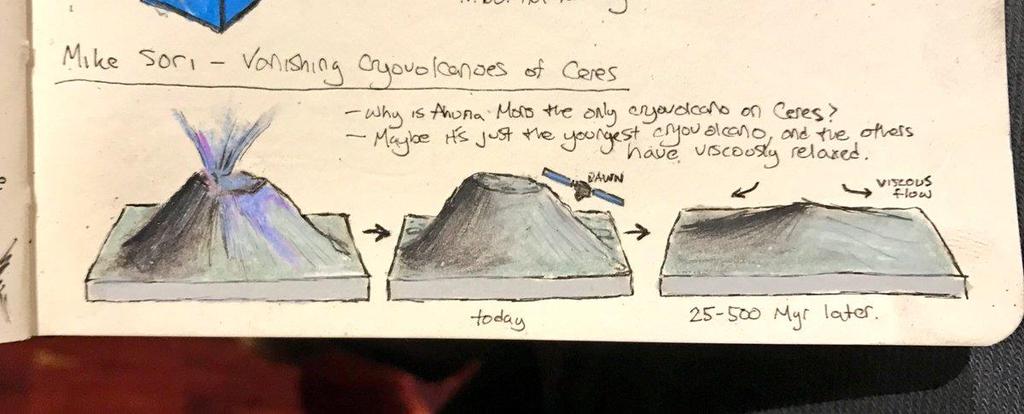 Mike Sori – Vanishing Cryovolcanoes of Ceres
– Why is Ahuna Mons the only cryovolcano on Ceres?
– Maybe it's just the youngest cryovolcano, and the others
have viscously relaxed.
DAWN
VISCOUS
flow
today
25-500 Myr later.